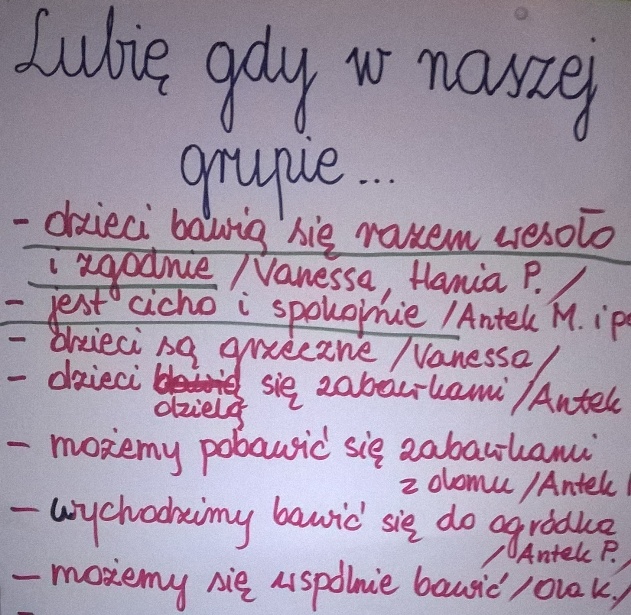 Lubię gdy w naszej
grupie...
- dzieci bawią się razem wesoło
i zgodnie /Vanessa, Hania P. /
- jest cicho i spokojnie /Antek M. i
- dzieci są grzeczne /Vanessa/
- dzieci bawią się zabawkami /Antek
dzielą
- możemy pobawić się zabawkami
z domu /Antek
- wychodzimy bawić się do ogródka
/Antek P./
- możemy się wspólnie bawić /Ola K./